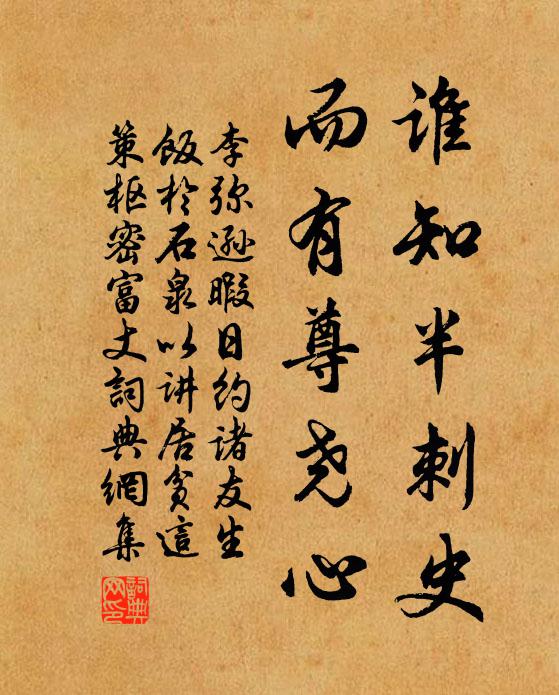 谁知半刺史
而有尊尧心
李弥逊暇日约诸友生
饭於石泉以讲居贫這
策枢密富丈詞典網集
詞典网印